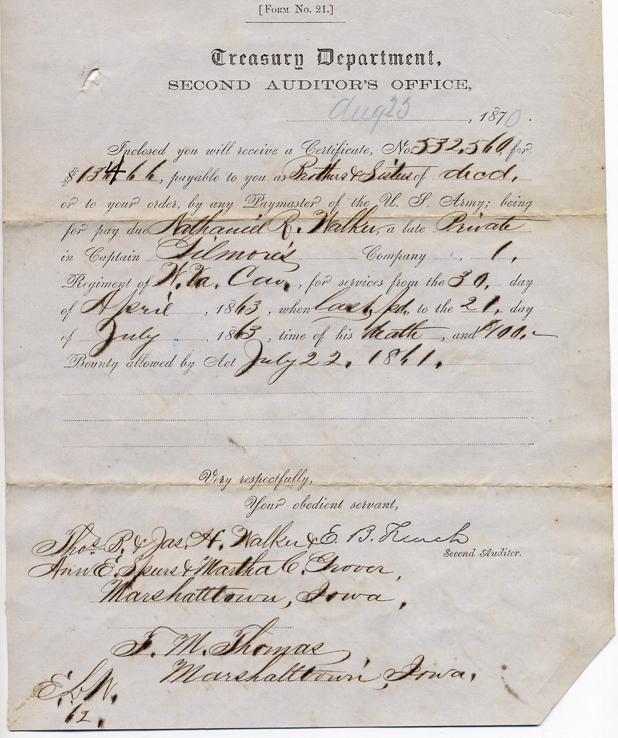 [FORM No. 21.]
Treasury Department,
SECOND AUDITOR'S OFFICE,
Aug 23, 1870.
Inclosed you will receive a Certificate, No. 532,560, for
$134 66, payable to you as Brothers & Sisters of decd.
or to your order, by any Paymaster of the U. S. Army; being
for pay due Nathaniel R. Walker, a late Private
in Captain Gilmore's Company, 1.
Regiment of W. Va. Cav., for services from the 30. day
of April, 1863, when last pd. to the 21. day
of July, 1863, time of his death, and $100.-
Bounty allowed by Act July 22. 1861.
Very respectfully,
Your obedient servant,
Thos. P. & Jas. H. Walker & E. B. French
Second Auditor.
Ann E. Spurs & Martha C. Grover,
Marshalltown, Iowa.
T. M. Thomas
Marshalltown, Iowa.
62.